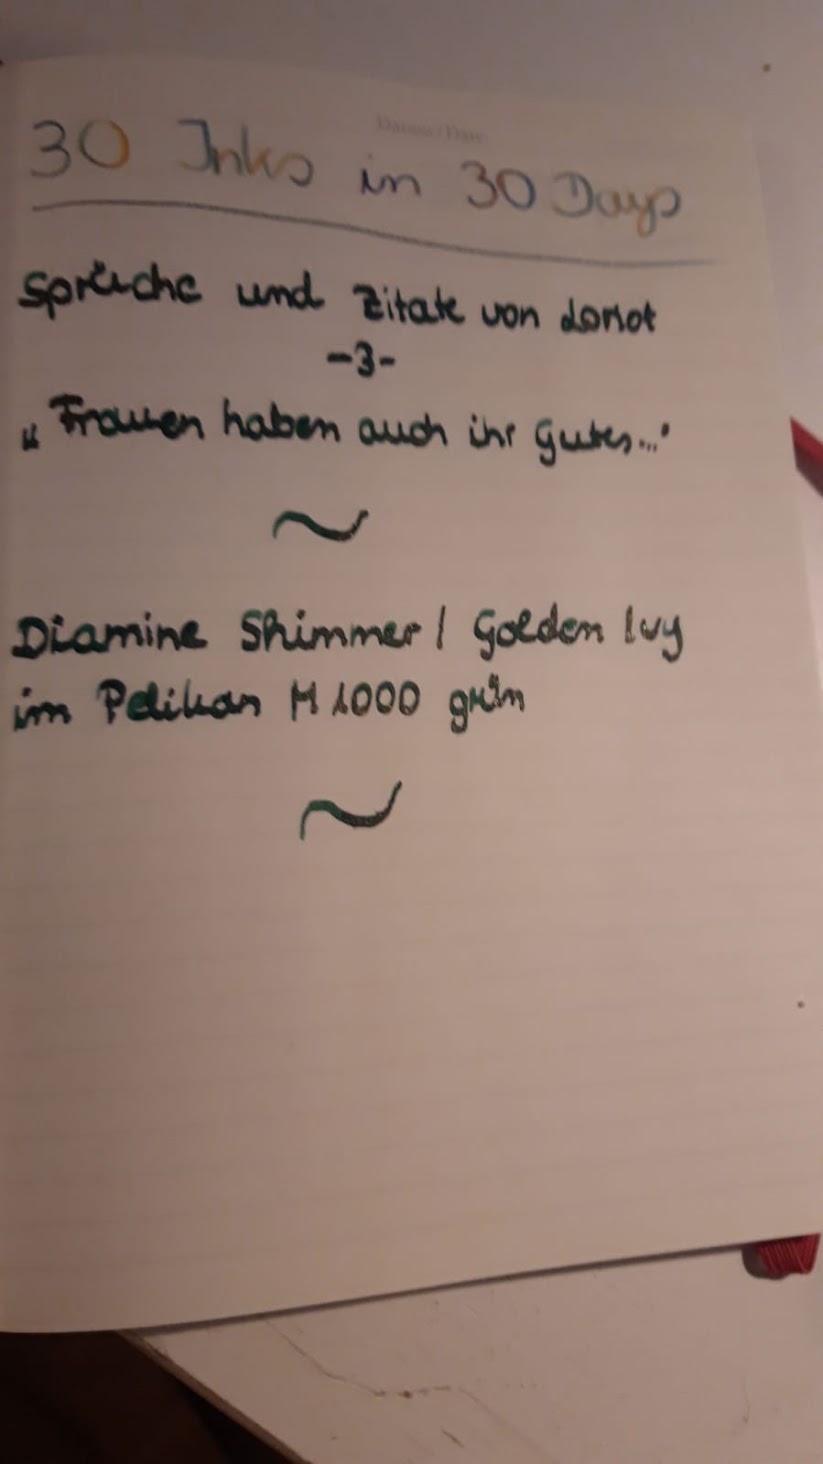 Datum/Date
30 Inks in 30 Days
Sprüche und Zitate von Loriot
-3-
„Frauen haben auch ihr Gutes..."
~
Diamine Shimmer / Golden Ivy
im Pelikan M1000 grün
~